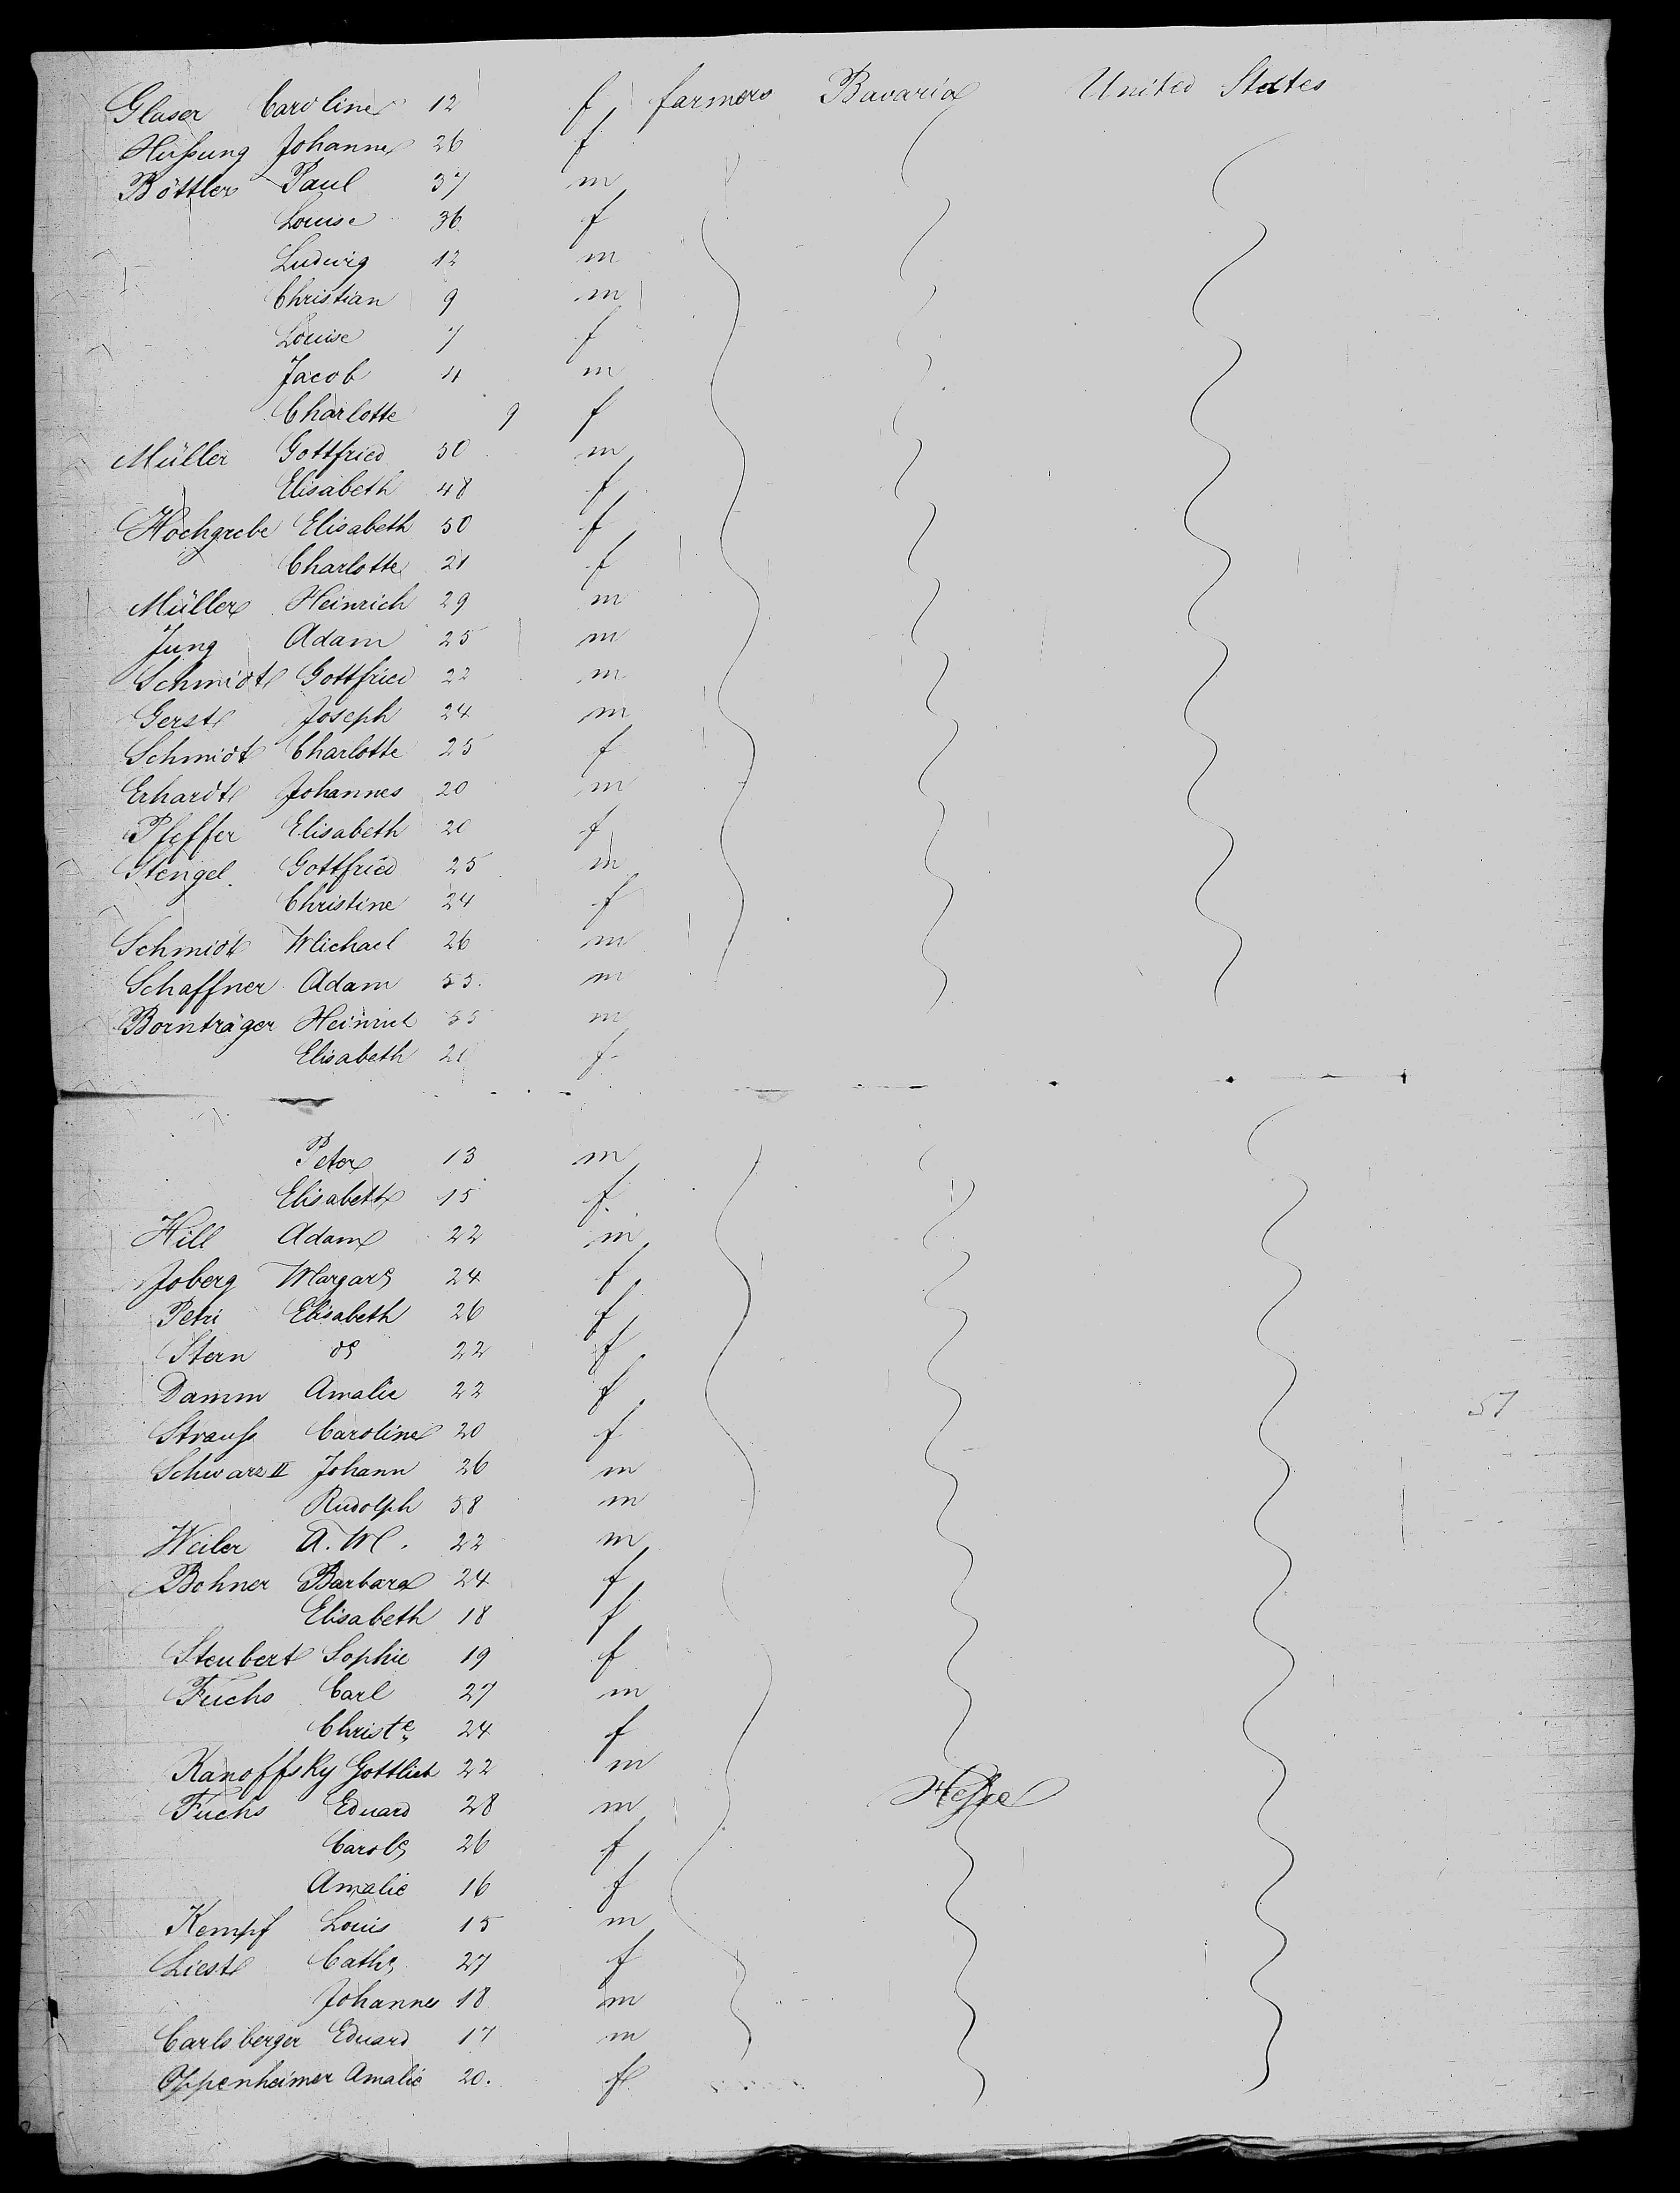 Glaser Caroline 12 f farmers Bavaria United States
Hußung Johanne 26 f
Böttler Paul 37 m
Louise 36 f
Ludwig 12 m
Christian 9 m
Louise 7 f
Jacob 4 m
Charlotte 9 f
Müller Gottfried 50 m
Elisabeth 48 f
Hochgrebe Elisabeth 50 f
Charlotte 21 f
Müller Heinrich 29 m
Jung Adam 25 m
Schmidt Gottfried 22 m
Gerst Joseph 24 m
Schmidt Charlotte 25 f
Erhardt Johannes 20 m
Pfeffer Elisabeth 20 f
Stengel Gottfried 25 m
Christine 24 f
Schmidt Michael 26 m
Schaffner Adam 53. m
Bornträger Heinrich 55 m
Elisabeth 21 f
Peter 13 m
Elisabeth 15 f
Hill Adam 22 m
Joberg Margar. 24 f
Petri Elisabeth 26 f
Stern do 22 f
Damm Amalie 22 f
Strauß Caroline 20 f 57
Schwarz II Johann 26 m
Rudolph 58 m
Weiler A. M. 22 m
Bohner Barbara 24 f
Elisabeth 18 f
Steubert Sophie 19 f
Fuchs Carl 27 m
Christe 24 f
Kanoffsky Gottlieb 22 m
Fuchs Eduard 28 m Hesse
Carol. 26 f
Amalie 16 f
Kempf Louis 15 m
Liest Cath. 27 f
Johannes 18 m
Carlsberger Eduard 17 m
Oppenheimer Amalie 20. f